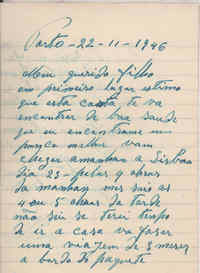 Porto - 22-11-1946
Meu querido filho
em primeiro lugar estimo
que esta carta te va
encontrar de boa saude
que eu encontrame um
pouco melhor vam
chegar amanham a Lisboa
dia 23 - pelas 9 oras
da manham mas saio as
4 ou 5 oras da tarde
não sei se terei tempo
de ir a casa vou fazer
uma viagem de 3 mezes
a bordo do paquete